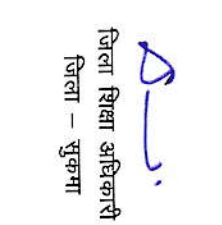 जिला शिक्षा अधिकारी
जिला – सुकमा